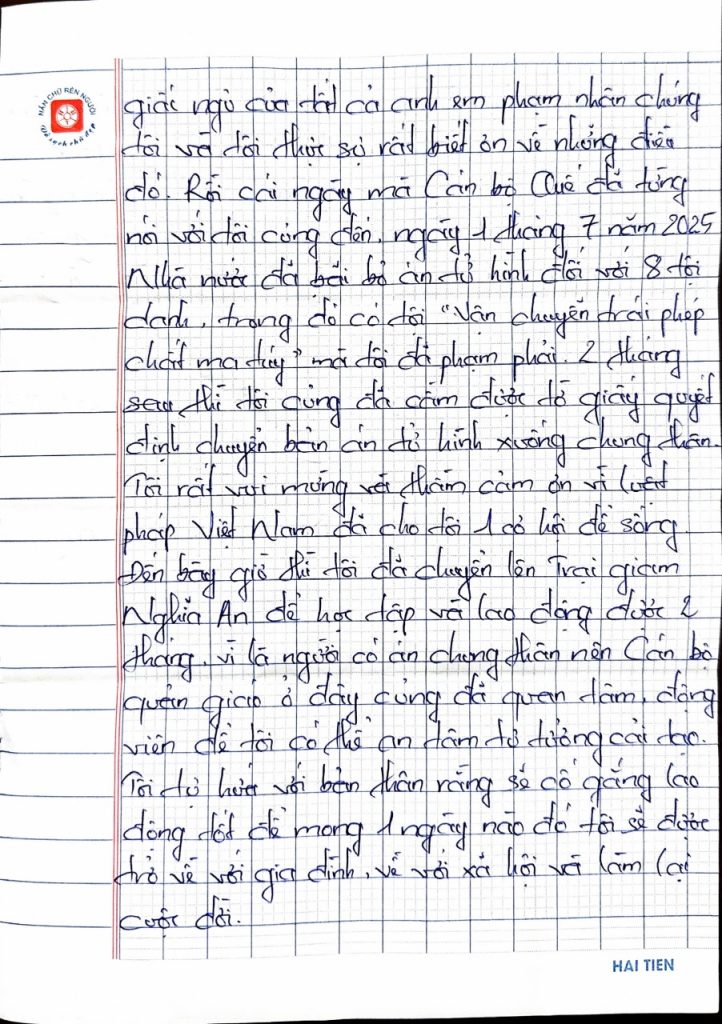 NẮN CHỮ RÈN NGƯỜI
Vở sạch chữ đẹp
giấc ngủ của tất cả anh em phạm nhân chúng
tôi và tôi thực sự rất biết ơn về những điều
đó. Rồi cái ngày mà Cán bộ Quế đã từng
nói với tôi cũng đến, ngày 1 tháng 7 năm 2025
Nhà nước đã bãi bỏ án tử hình đối với 8 tội
danh, trong đó có tội "Vận chuyển trái phép
chất ma túy" mà tôi đã phạm phải. 2 tháng
sau thì tôi cũng đã cầm được tờ giấy quyết
định chuyển bản án tử hình xuống chung thân.
Tôi rất vui mừng và thầm cảm ơn vì luật
pháp Việt Nam đã cho tôi 1 cơ hội để sống.
Đến bây giờ thì tôi đã chuyển lên Trại giam
Nghĩa An để học tập và lao động được 2
tháng, vì là người có án chung thân nên Cán bộ
quản giáo ở đây cũng đã quan tâm, động
viên để tôi có thể an tâm tư tưởng cải tạo.
Tôi tự hứa với bản thân rằng sẽ cố gắng lao
động tốt để mong 1 ngày nào đó tôi sẽ được
trở về với gia đình, về với xã hội và làm lại
cuộc đời.
HAI TIEN